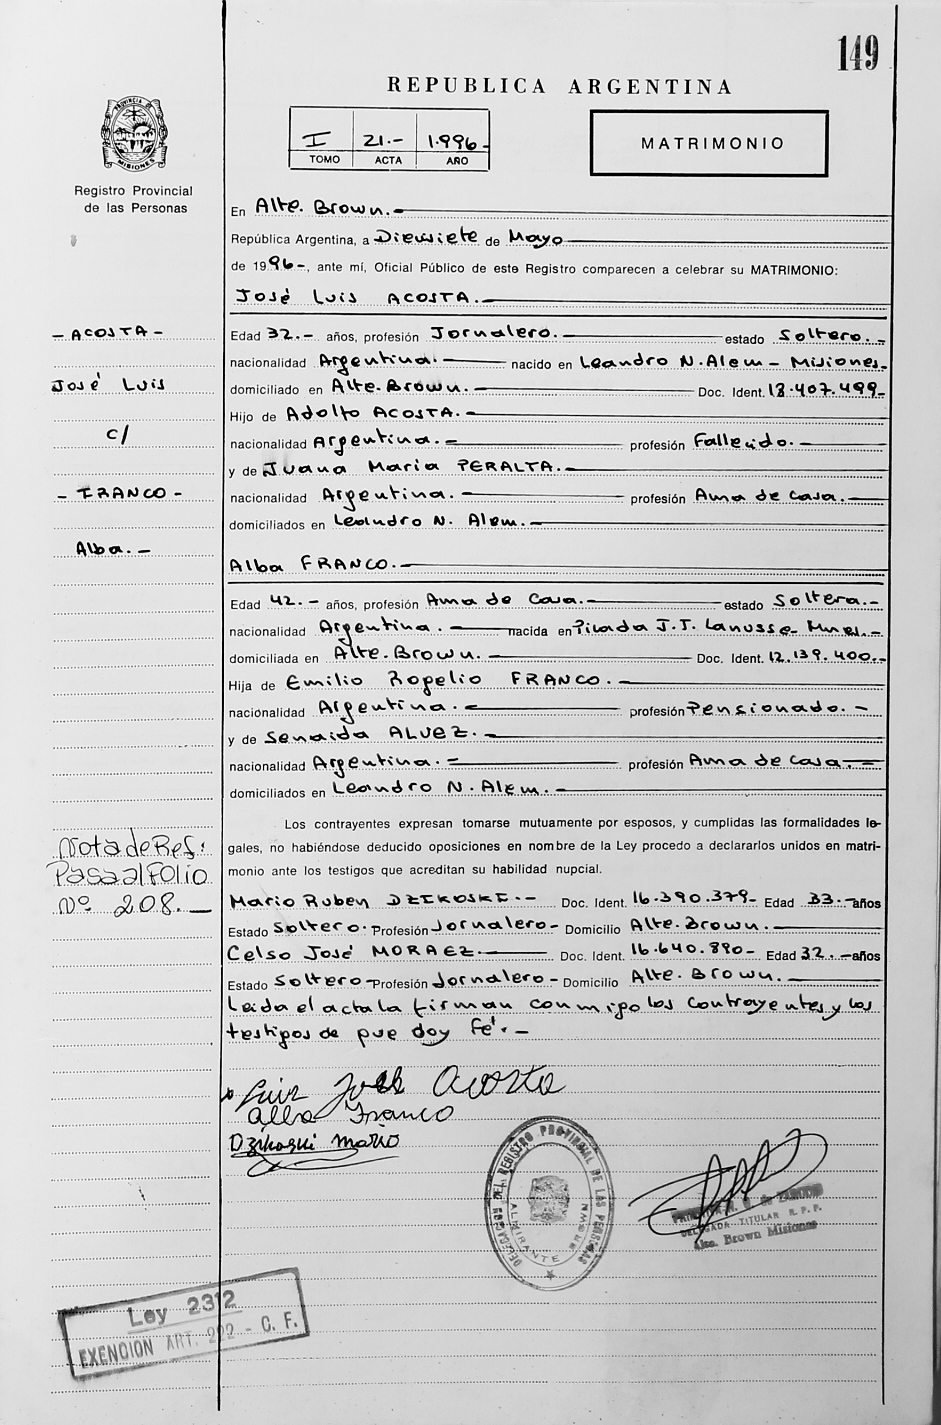 149
REPUBLICA ARGENTINA
PROVINCIA DE MISIONES
I 21.- 1.996-
TOMO ACTA AÑO
MATRIMONIO
Registro Provincial
de las Personas
En Alte. Brown.-
República Argentina, a Diecisiete de Mayo
de 1996-, ante mí, Oficial Público de este Registro comparecen a celebrar su MATRIMONIO:
José Luis ACOSTA.-
- ACOSTA -
José Luis
c/
- FRANCO -
Alba.-
Edad 32.- años, profesión Jornalero.- estado Soltero.-
nacionalidad Argentina.- nacido en Leandro N. Alem - Misiones.
domiciliado en Alte. Brown.- Doc. Ident. 18.407.499-
Hijo de Adolfo ACOSTA.-
nacionalidad Argentina.- profesión Fallecido.-
y de Juana Maria PERALTA.-
nacionalidad Argentina.- profesión Ama de Casa.-
domiciliados en Leandro N. Alem.-
Alba FRANCO.-
Edad 42.- años, profesión Ama de Casa.- estado Soltera.-
nacionalidad Argentina.- nacida en Picada J.J. Lanusse- Mnes.-
domiciliada en Alte. Brown.- Doc. Ident. 12.139.400.-
Hija de Emilio Rogelio FRANCO.-
nacionalidad Argentina.- profesión Pensionado.-
y de Senaida ALVEZ.-
nacionalidad Argentina.- profesión Ama de Casa.-
domiciliados en Leandro N. Alem.-
Los contrayentes expresan tomarse mutuamente por esposos, y cumplidas las formalidades le-
gales, no habiéndose deducido oposiciones en nombre de la Ley procedo a declararlos unidos en matri-
monio ante los testigos que acreditan su habilidad nupcial.
Nota de Ref:
Pasa al Folio
Nº 208.-
Mario Ruben DZIKOSKI.- Doc. Ident. 16.390.379- Edad 33.- años
Estado Soltero. Profesión Jornalero- Domicilio Alte. Brown.-
Celso José MORAEZ- Doc. Ident. 16.640.890- Edad 32.- años
Estado Soltero- Profesión Jornalero- Domicilio Alte. Brown.-
Leida el acta la firman conmigo los contrayentes y los
testigos de que doy Fé.-
Luis José Acosta
Alba Franco
Dzikoski Mario
DELEGACION DEL REGISTRO PROVINCIAL DE LAS PERSONAS
ALMIRANTE BROWN
DELEGADA TITULAR R. P. P.
Alte. Brown Misiones
Ley 2312
EXENCION ART. 222 - C. F.